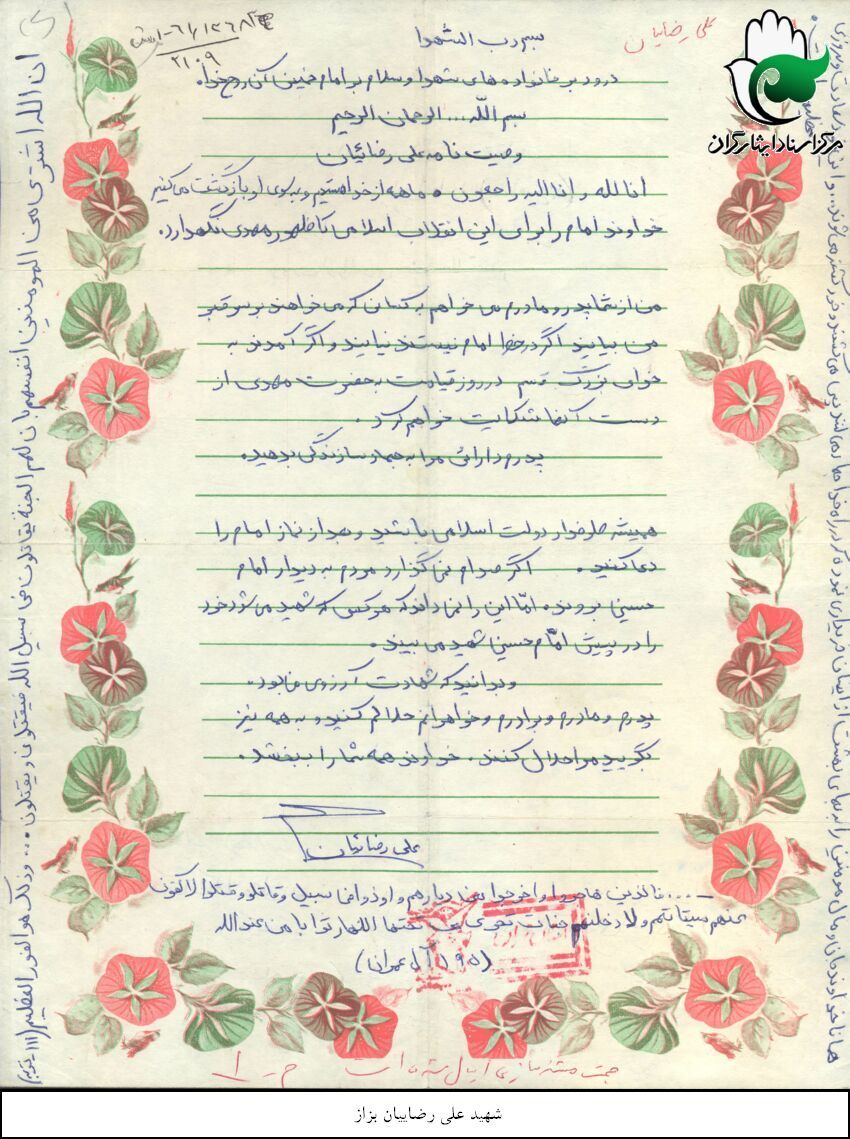 علی رضاییان
مرکز اسناد ایثارگران
۲۱۰۹
بسم رب الشهدا
درود بر خانواده های شهدا و سلام بر امام خمینی آن روح خدا.
بسم اللّه... الرحمان الرحیم
وصیت نامه علی رضائیان
انا لله و انا الیه راجعون ه ما همه از خدا هستیم و به سوی او بازگشت می کنیم
خداوند امام را برای این انقلاب اسلامی تا ظهور مهدی نگهدارد.
من از شما پدر و مادرم می خواهم به کسان که می خواهند بر سر قبر
من بیایند اگر در خط امام نیستند نیایند و اگر آمدند به
خدای بزرگ قسم در روز قیامت به حضرت مهدی از
دست آنها شکایت خواهم کرد.
پدرم دارائی مرا به جهاد سازندگی بدهید.
همیشه طرفدار دولت اسلامی باشید و بعد از نماز امام را
دعا کنید. اگر صدام نمی گذارد مردم به دیدار امام
حسین بروند، امّا این را نمی داند که هر کس که شهید می شود خود
را در پیش امّام حسین شهید می بیند.
و بدانید که شهادت آرزوی ما بود.
پدرم و مادرم و برادرم و خواهرانم حلالم کنید و به همه نیز
بگویید مرا حلال کنند. خداوند همه شما را ببخشد.
علی رضائیان
....فالذین هاجروا و اخرجوا من دیارهم و اوذوا فی سبیل و قاتلو و قتلوا لاکفرن
عنهم سیئاتهم و لادخلنهم جنات تجری من تحتها النهار ثوابا من عندالله
(۱۹۵ آل عمران)
ان الله اشتری من المومنین انفسهم بان لهم الجنة یقاتلون فی سبیل الله فیقتلون و یقتلون ... و ذلک هو الفوز العظیم (۱۱۱ توبه)
همانا خداوند جان و مال مومنین را به بهای بهشت از ایشان خریداری نموده که در راه خدا جهاد می کنند می کشند و خود کشته می شوند... و این
شهید علی رضاییان بزاز